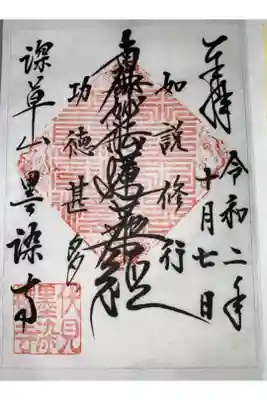 奉拝 令和二年
十月七日
如説修行
南無妙法蓮華経
功徳甚多
深草山 墨染寺
伏見
墨染